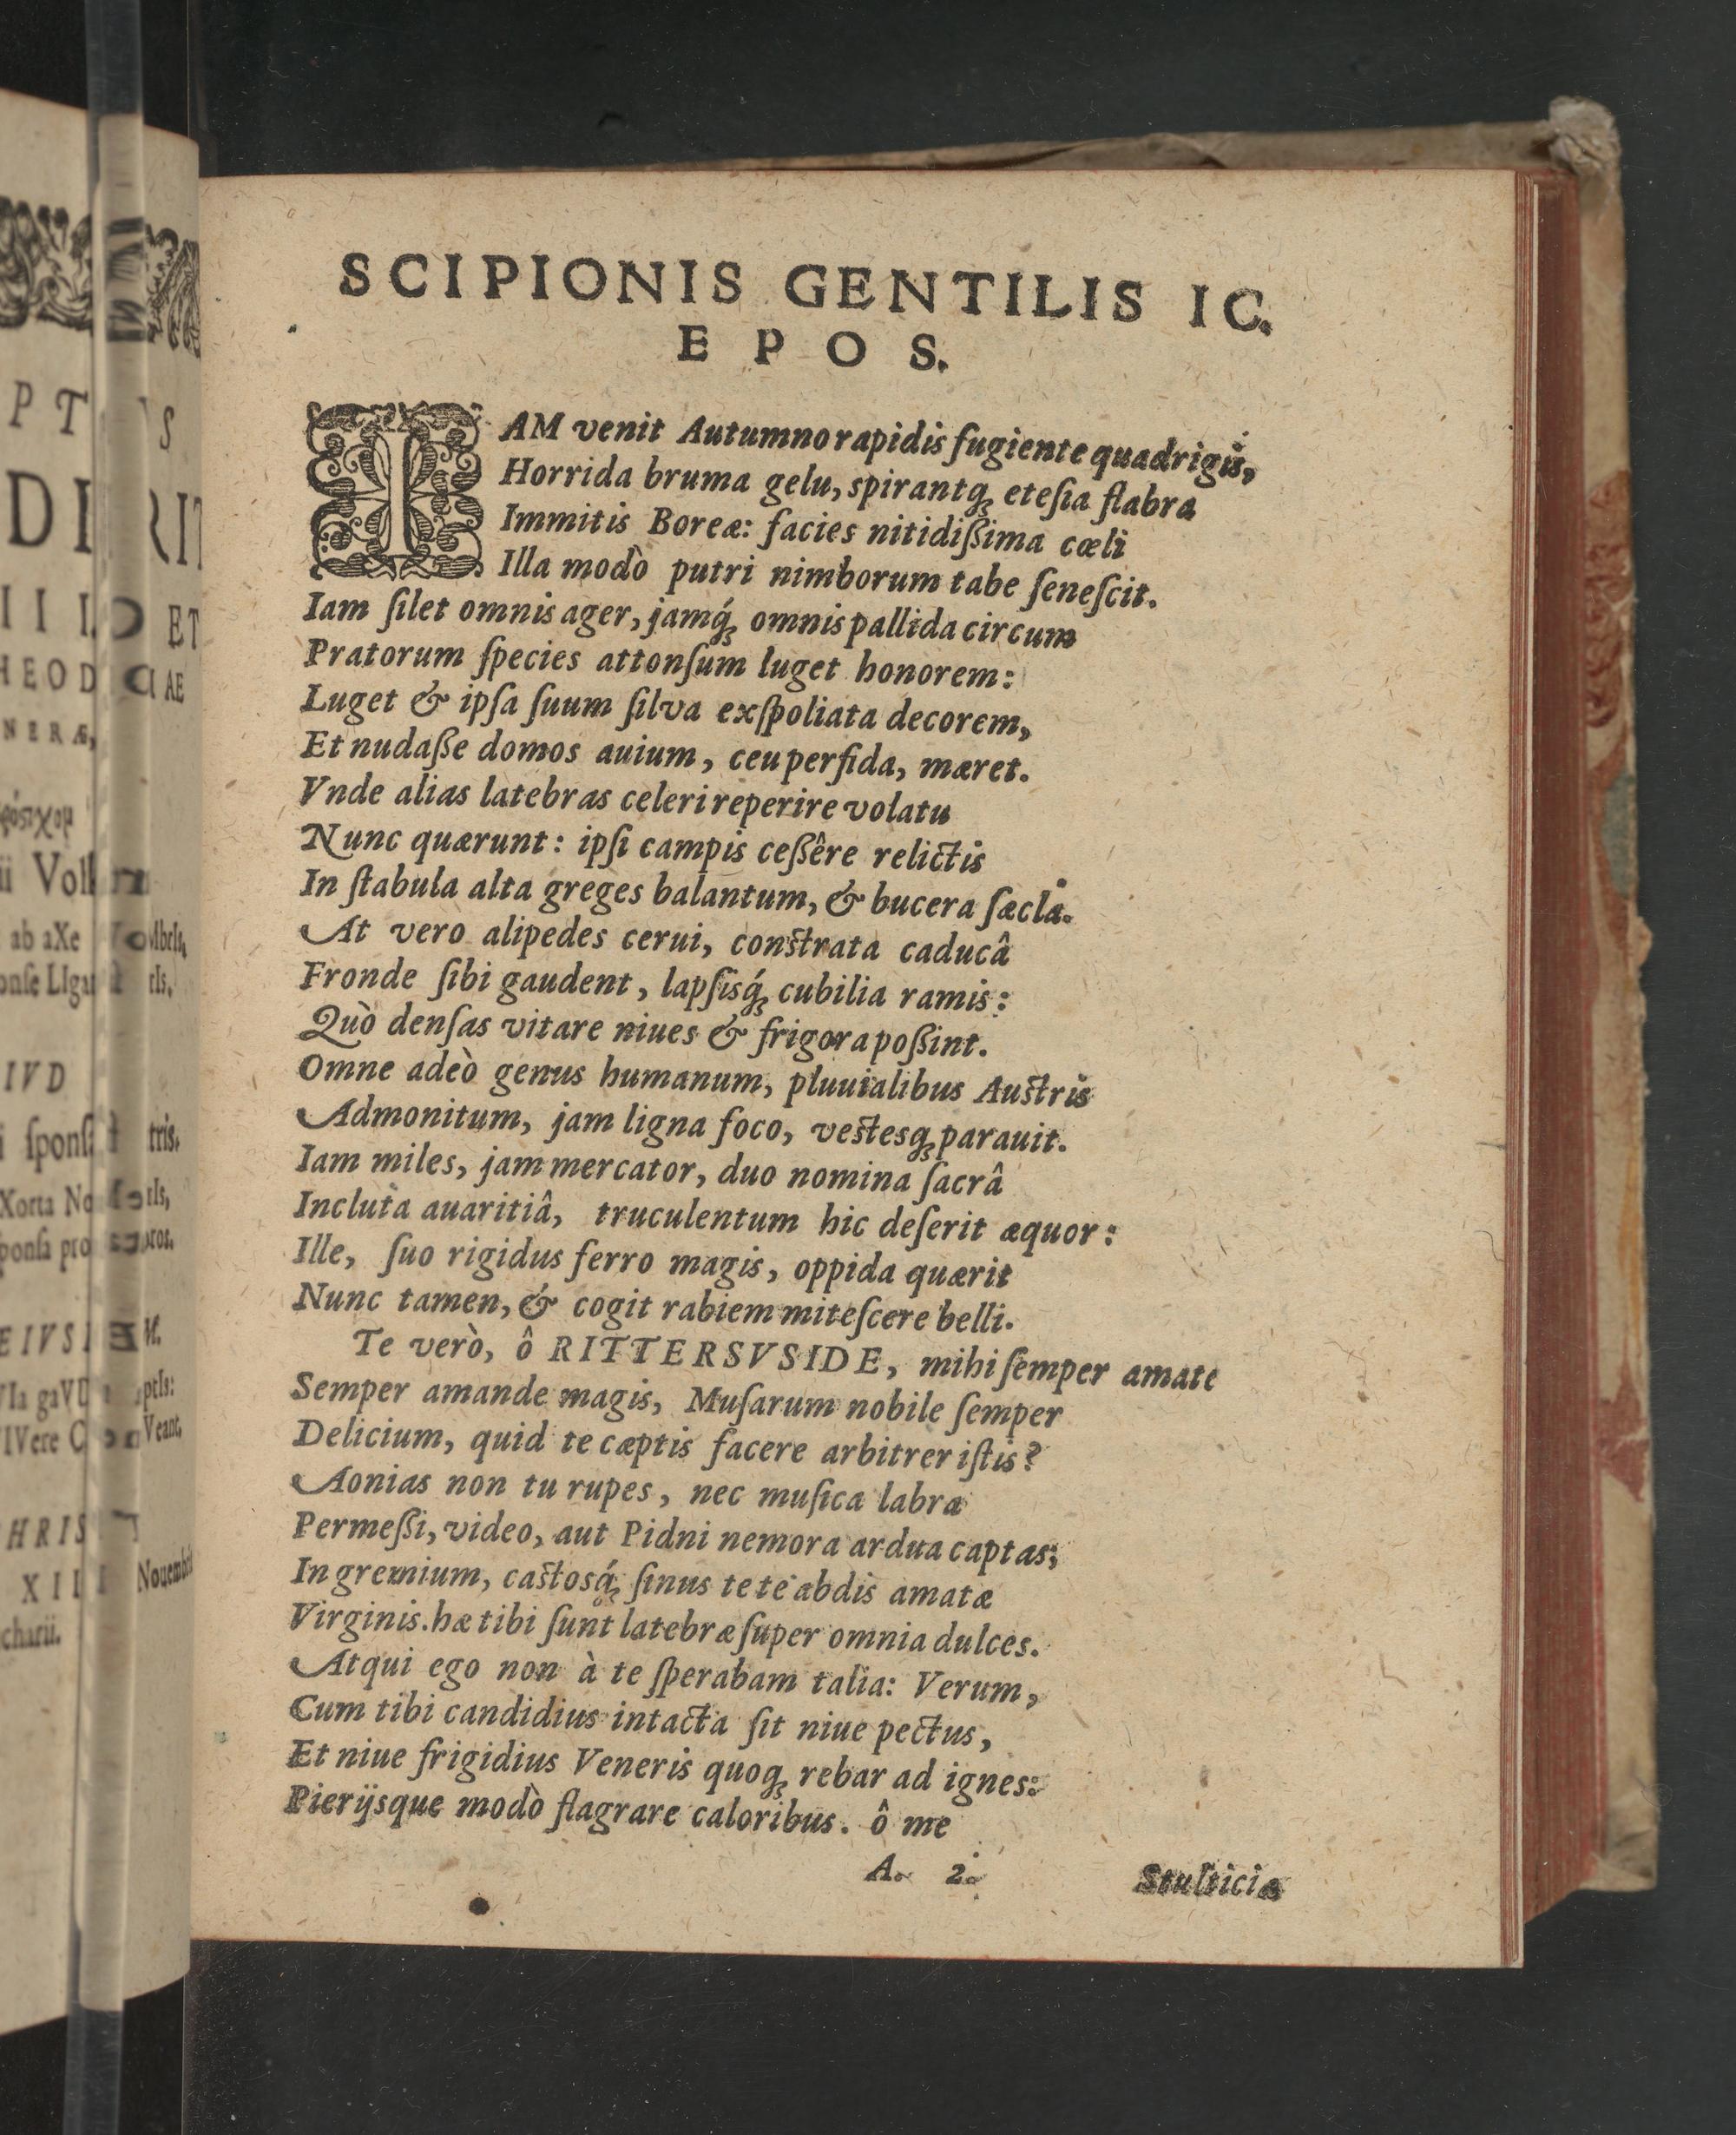 SCIPIONIS GENTILIS IC.
EPOS.
IAM venit Autumno rapidis fugiente quadrigis,
Horrida bruma gelu, spirantq́ꝫ eteſia flabra
Immitis Boreæ: facies nitidißima cœli
Illa modò putri nimborum tabe ſeneſcit.
Iam ſilet omnis ager, jamq́ꝫ omnis pallida circum
Pratorum ſpecies attonſum luget honorem:
Luget & ipſa ſuum ſilva exſpoliata decorem,
Et nudaße domos auium, ceu perfida, mæret.
Vnde alias latebras celeri reperire volatu
Nunc quærunt: ipſi campis ceßêre relictis
In ſtabula alta greges balantum, & bucera ſæcla.
At vero alipedes cerui, conſtrata caducâ
Fronde ſibi gaudent, lapſisq́ꝫ cubilia ramis:
Quò denſas vitare niues & frigora poßint.
Omne adeò genus humanum, pluuialibus Auſtris
Admonitum, jam ligna foco, veſtesqꝫ parauit.
Iam miles, jam mercator, duo nomina ſacrâ
Incluta auaritiâ, truculentum hic deſerit æquor:
Ille, ſuo rigidus ferro magis, oppida quærit
Nunc tamen, & cogit rabiem miteſcere belli.
Te verò, ô RITTERSVSIDE, mihi ſemper amate
Semper amande magis, Muſarum nobile ſemper
Delicium, quid te cæptis facere arbitrer iſtis?
Aonias non tu rupes, nec muſica labra
Permeßi, video, aut Pidni nemora ardua captas;
In gremium, caſtosq́ꝫ ſinus tete abdis amatæ
Virginis. hæ tibi ſunt latebræ ſuper omnia dulces.
Atqui ego non à te ſperabam talia: Verum,
Cum tibi candidius intacta ſit niue pectus,
Et niue frigidius Veneris quoqꝫ rebar ad ignes:
Pierijsque modò flagrare caloribus. ô me
A. 2.
Stulticia